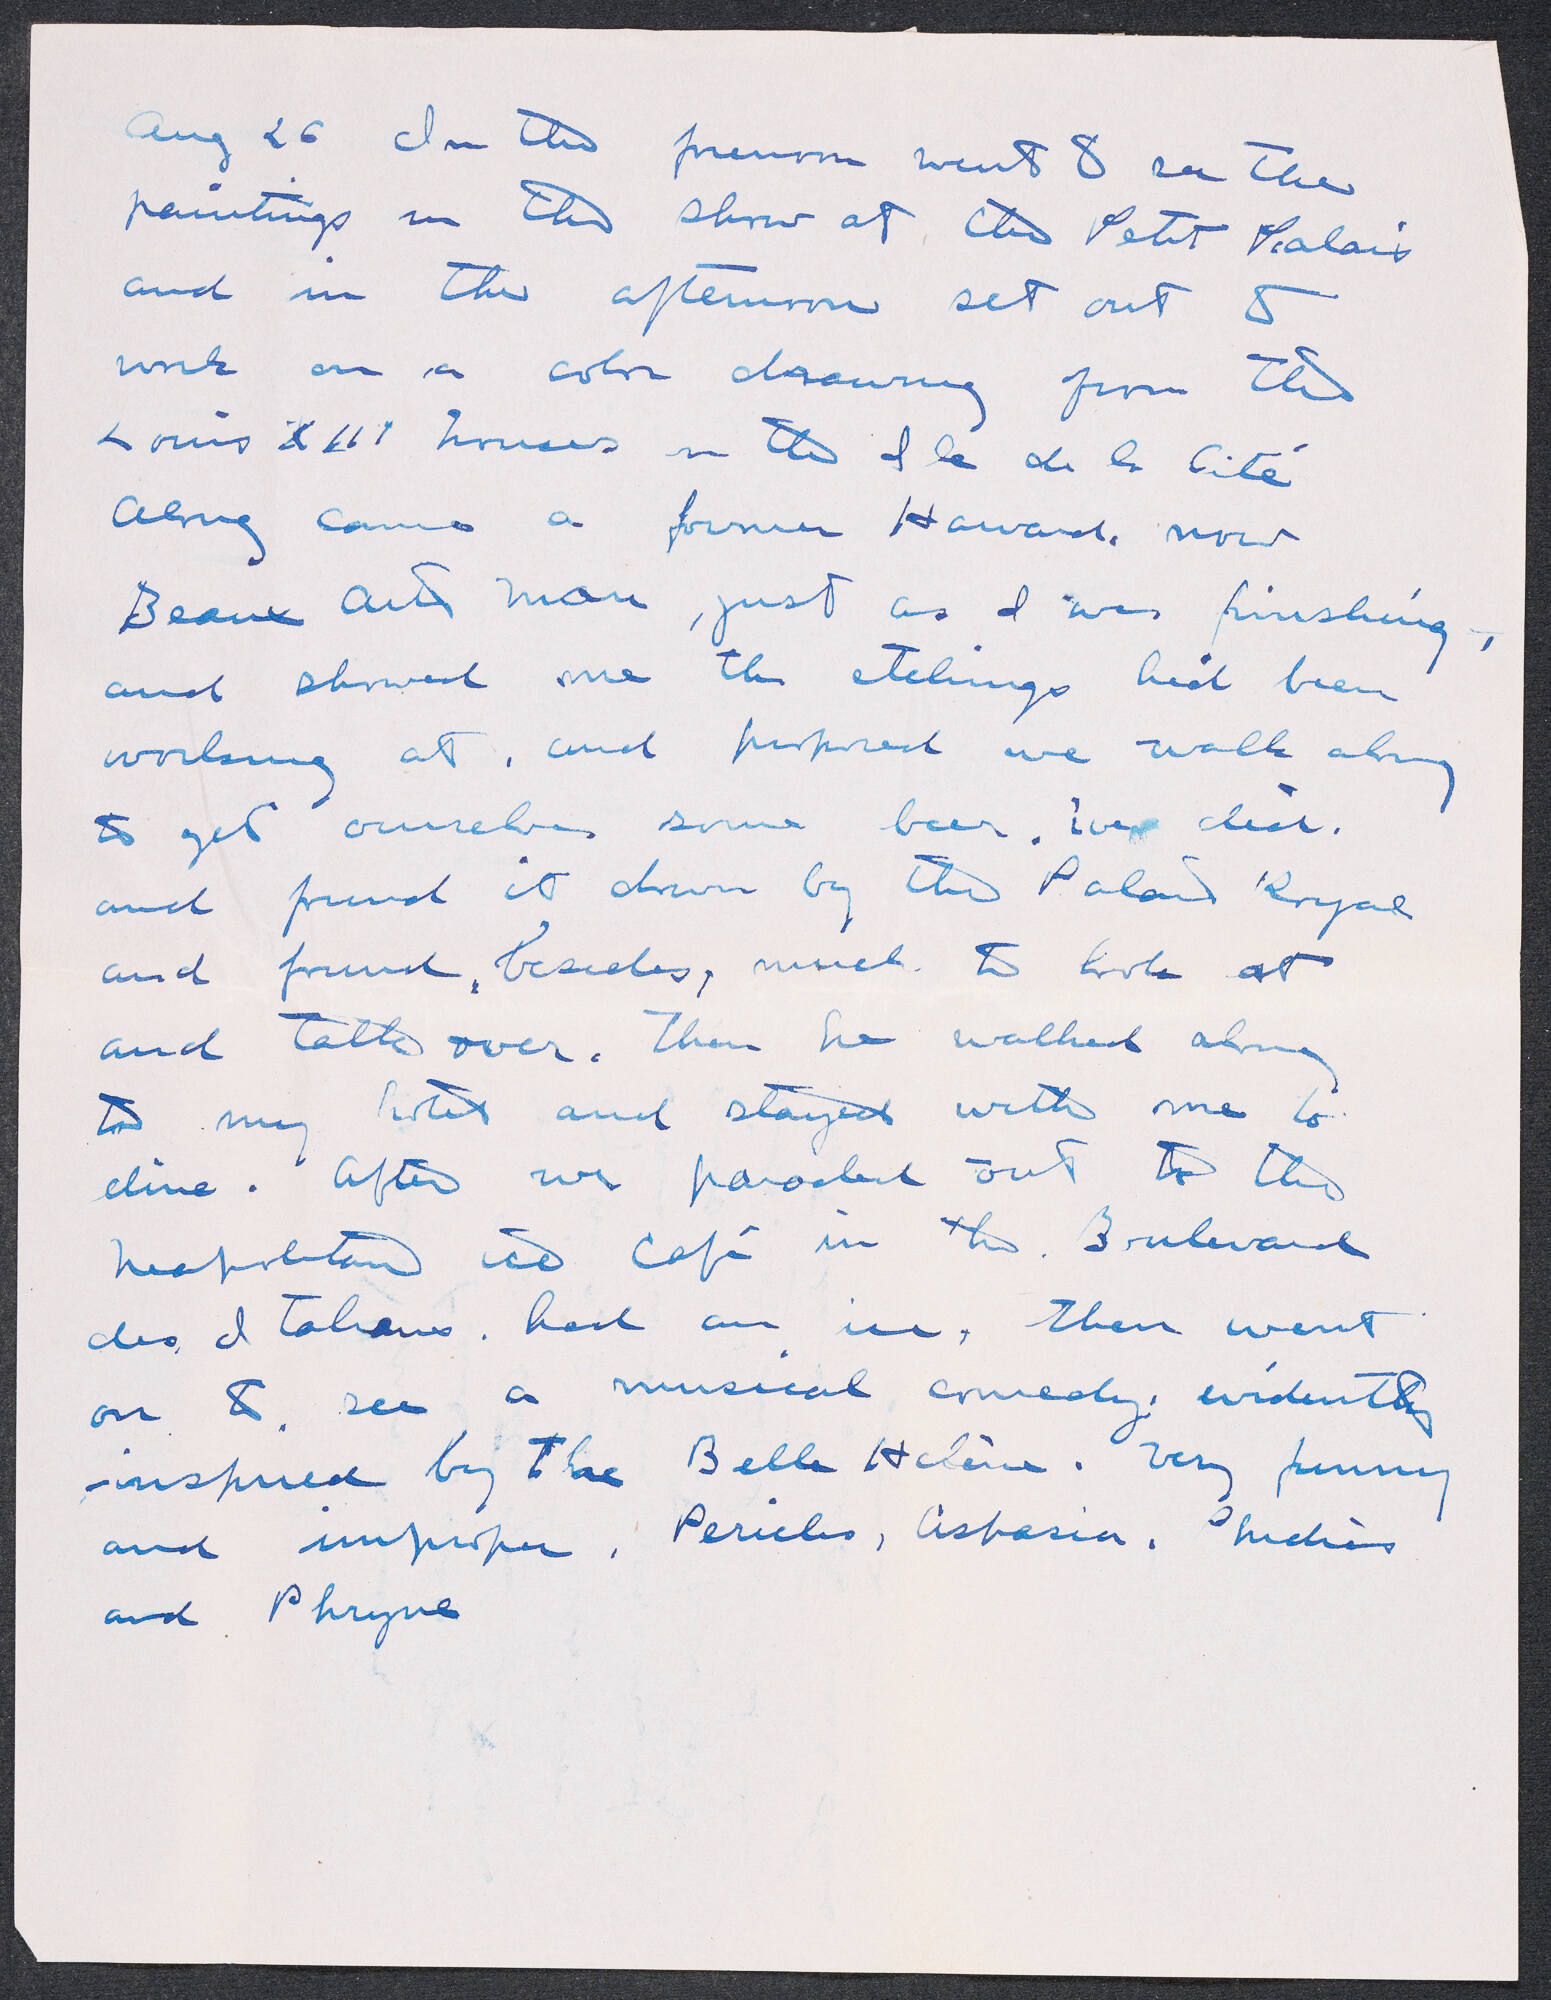 Aug 26 In the forenoon went to see the
paintings in the show at the Petit Palais
and in the afternoon set out to
work on a color drawing from the
Louis XIII houses in the Ile de la Cité
Along came a former Harvard, now
Beaux Arts man, just as I was finishing,
and showed me the etchings he'd been
working at, and proposed we walk along
to get ourselves some beer. We did.
and found it down by the Palais Royal
and found, besides, much to look at
and talk over. Then he walked along
to my hotel and stayed with me to
dine. After we paraded out to the
Neapolitan ice Café in the Boulevard
des Italiens. had an ice, then went
on to see a musical comedy, evidently
inspired by the Belle Helène. Very funny
and improper. Pericles, Aspasia, Phidias
and Phryne